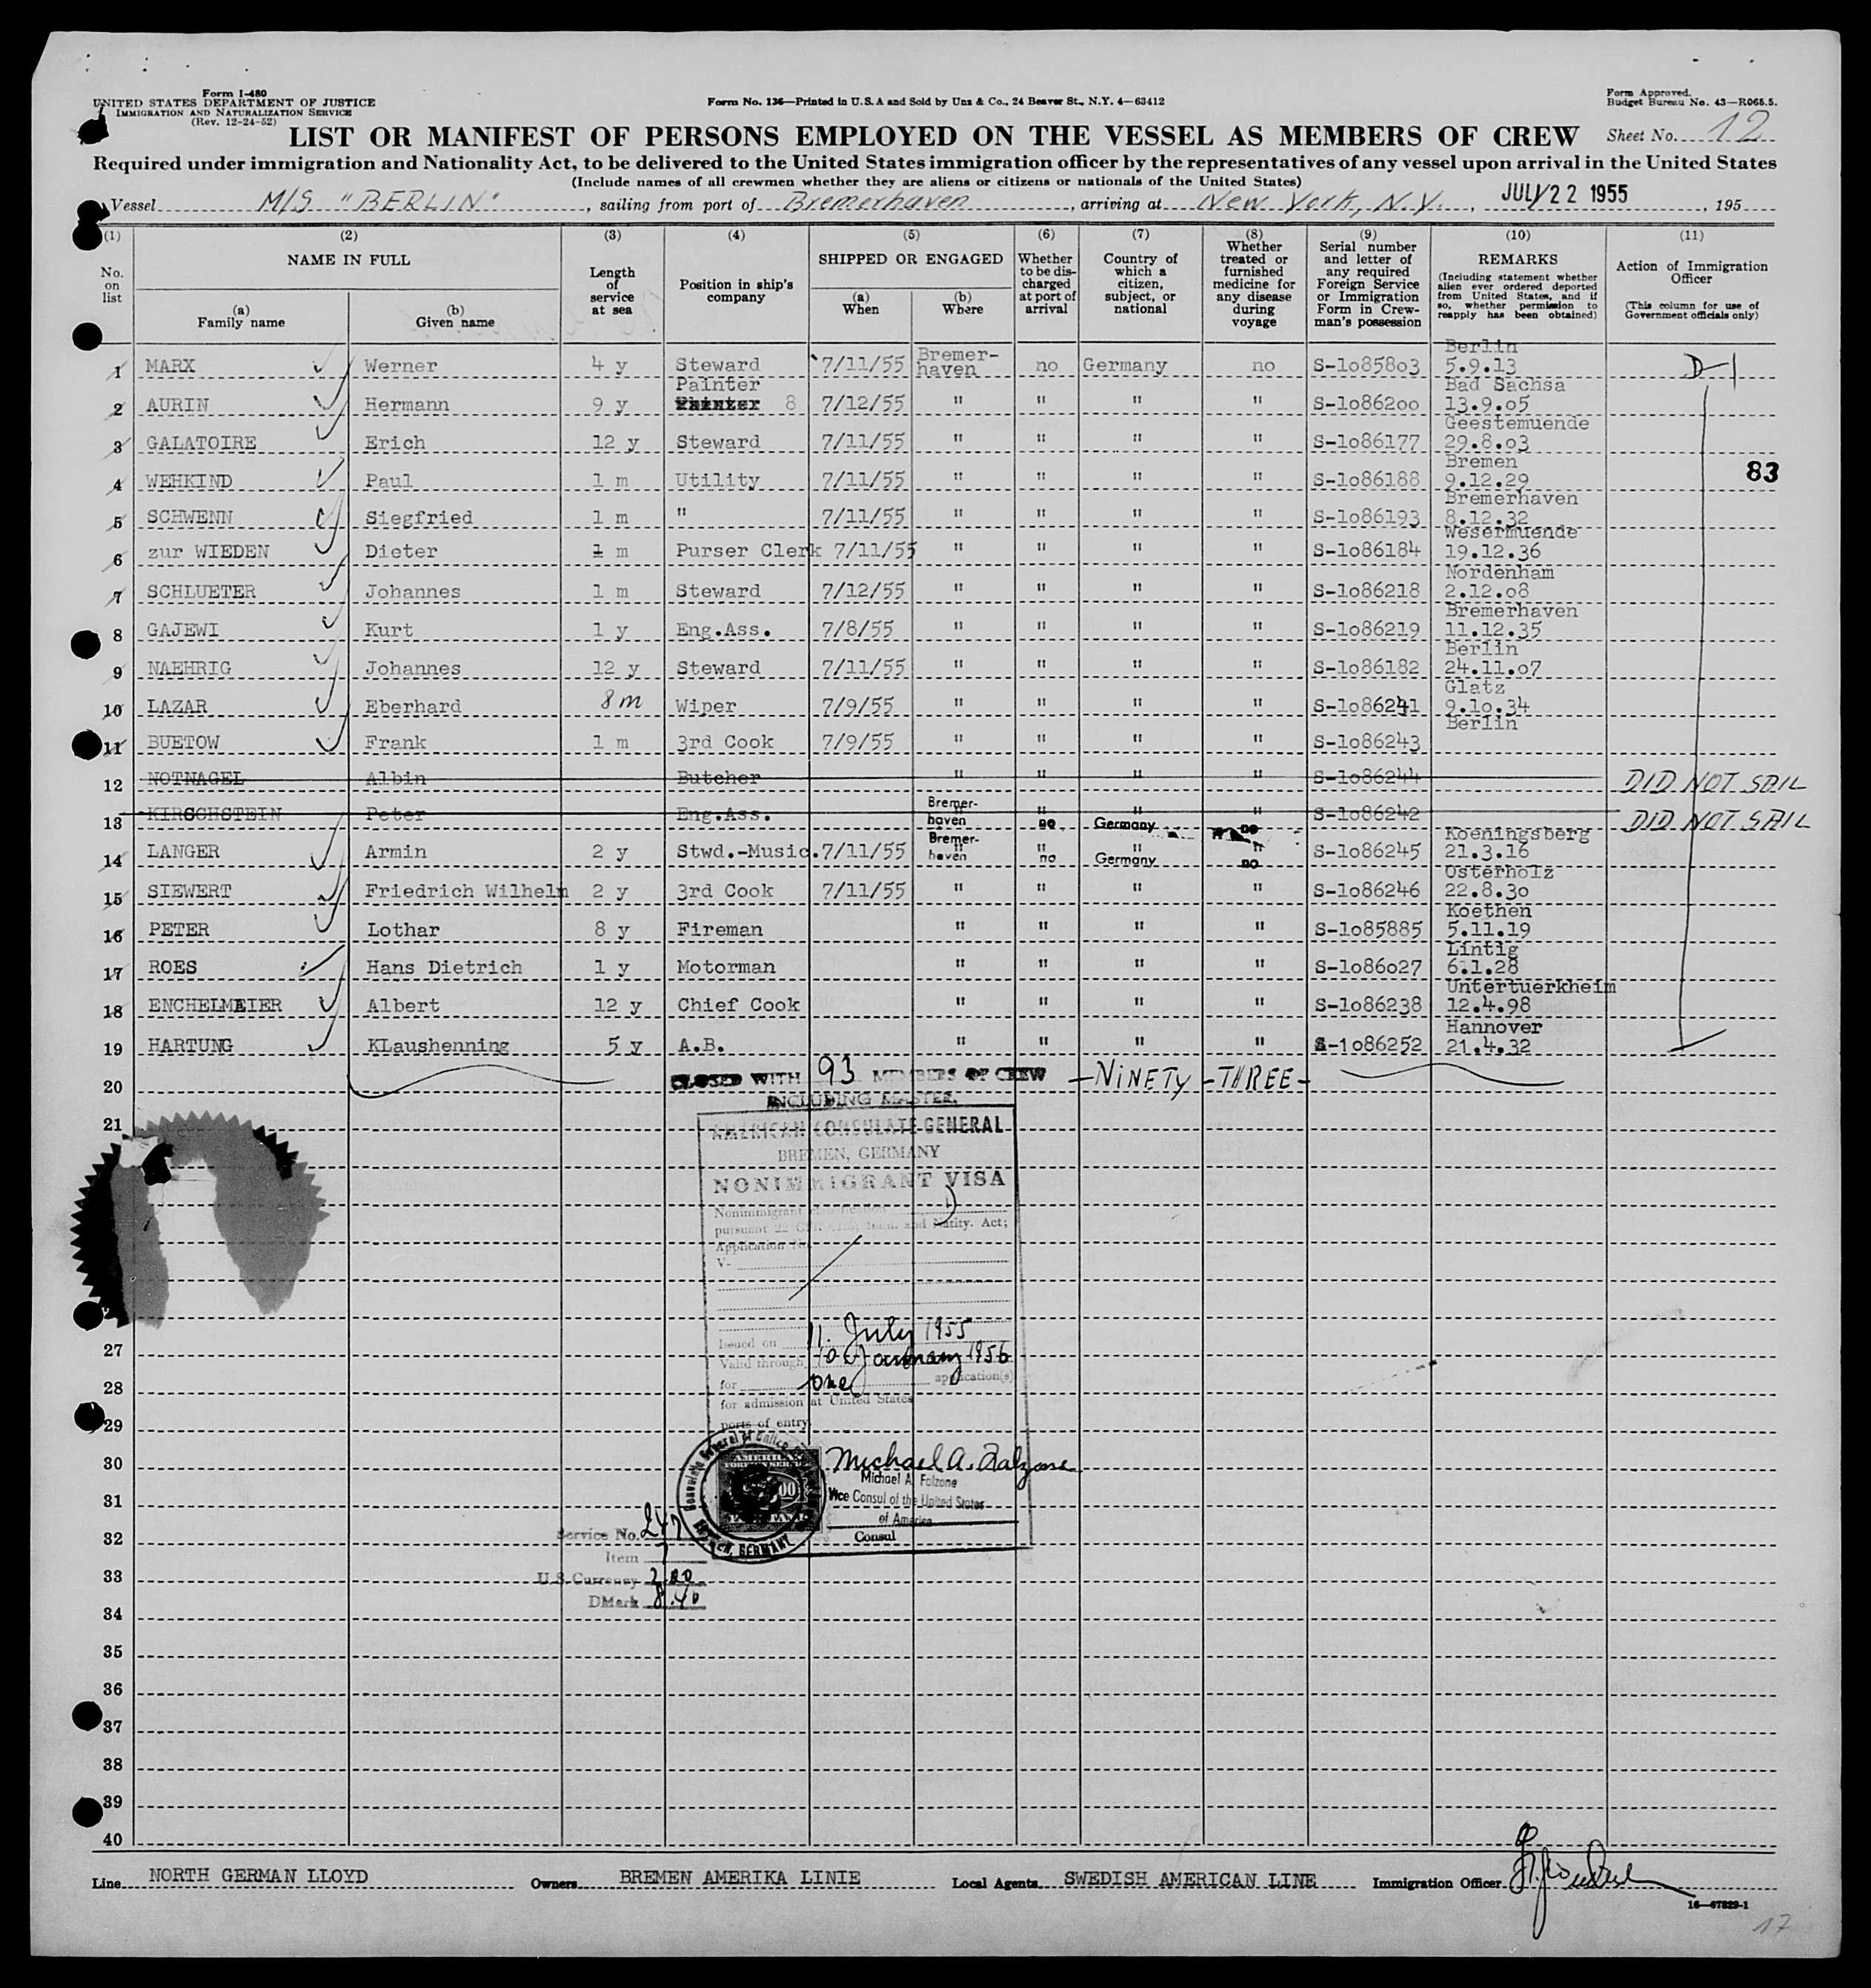 Form I-480
UNITED STATES DEPARTMENT OF JUSTICE
IMMIGRATION AND NATURALIZATION SERVICE
(Rev. 12-24-52)
Form No. 136—Printed in U.S.A and Sold by Unz & Co., 24 Beaver St., N.Y. 4—63412
Form Approved.
Budget Bureau No. 43—R065.5.
LIST OR MANIFEST OF PERSONS EMPLOYED ON THE VESSEL AS MEMBERS OF CREW
Sheet No. 12
Required under immigration and Nationality Act, to be delivered to the United States immigration officer by the representatives of any vessel upon arrival in the United States
(Include names of all crewmen whether they are aliens or citizens or nationals of the United States)
Vessel M/S "BERLIN", sailing from port of Bremerhaven, arriving at New York, N.Y., JULY 22 1955, 195
(1) No. on list
(2) NAME IN FULL
(a) Family name
(b) Given name
(3) Length of service at sea
(4) Position in ship's company
(5) SHIPPED OR ENGAGED
(a) When
(b) Where
(6) Whether to be discharged at port of arrival
(7) Country of which a citizen, subject, or national
(8) Whether treated or furnished medicine for any disease during voyage
(9) Serial number and letter of any required Foreign Service or Immigration Form in Crewman's possession
(10) REMARKS
(Including statement whether alien ever ordered deported from United States, and if so, whether permission to reapply has been obtained)
(11) Action of Immigration Officer
(This column for use of Government officials only)
1 MARX Werner 4 y Steward 7/11/55 Bremerhaven no Germany no S-1o858o3 Berlin 5.9.13 D-1
2 AURIN Hermann 9 y Painter 8 7/12/55 " " " " S-1o862oo Bad Sachsa 13.9.o5
3 GALATOIRE Erich 12 y Steward 7/11/55 " " " " S-1o86177 Geestemuende 29.8.o3
4 WEHKIND Paul 1 m Utility 7/11/55 " " " " S-1o86188 Bremen 9.12.29
83
5 SCHWENN Siegfried 1 m " 7/11/55 " " " " S-1o86193 Bremerhaven 8.12.32
6 zur WIEDEN Dieter 1 m Purser Clerk 7/11/55 " " " " S-1o86184 Wesermuende 19.12.36
7 SCHLUETER Johannes 1 m Steward 7/12/55 " " " " S-1o86218 Nordenham 2.12.o8
8 GAJEWI Kurt 1 y Eng.Ass. 7/8/55 " " " " S-1o86219 Bremerhaven 11.12.35
9 NAEHRIG Johannes 12 y Steward 7/11/55 " " " " S-1o86182 Berlin 24.11.o7
10 LAZAR Eberhard 8 m Wiper 7/9/55 " " " " S-1o86241 Glatz 9.1o.34
11 BUETOW Frank 1 m 3rd Cook 7/9/55 " " " " S-1o86243 Berlin
12 NOTNAGEL Albin Butcher " " " " S-1o86244 DID NOT SAIL
13 KIRSCHSTEIN Peter Eng.Ass. Bremerhaven no Germany no S-1o86242 DID NOT SAIL
14 LANGER Armin 2 y Stwd.-Music. 7/11/55 Bremerhaven no Germany no S-1o86245 Koeningsberg 21.3.16
15 SIEWERT Friedrich Wilhelm 2 y 3rd Cook 7/11/55 " " " " S-1o86246 Osterholz 22.8.3o
16 PETER Lothar 8 y Fireman " " " " S-1o85885 Koethen 5.11.19
17 ROES Hans Dietrich 1 y Motorman " " " " S-1o86o27 Lintig 6.1.28
18 ENCHELMAIER Albert 12 y Chief Cook " " " " S-1o86238 Untertuerkheim 12.4.98
19 HARTUNG KLaushenning 5 y A.B. " " " " S-1o86252 Hannover 21.4.32
20 CLOSED WITH 93 MEMBERS OF CREW —NINETY-THREE—
INCLUDING MASTER.
21
AMERICAN CONSULATE GENERAL
BREMEN, GERMANY
NONIMMIGRANT VISA
Nonimmigrant classification
pursuant 22 CFR Imm. and Natity. Act;
Application No.
V-
Issued on 11. July 1955
27
Valid through 10 January 1956
28
for one application(s)
for admission at United States
29
ports of entry.
30
Michael A. Falzone
Michael A. Falzone
31
Vice Consul of the United States
of America
Consul
AMERICAN
GERMANY
Service No. 247
32
Item 7
33
U.S. Currency 2.00
DMark 8.40
34
35
36
37
38
39
40
Line NORTH GERMAN LLOYD Owners BREMEN AMERIKA LINIE Local Agents SWEDISH AMERICAN LINE Immigration Officer
16—67829-1
17